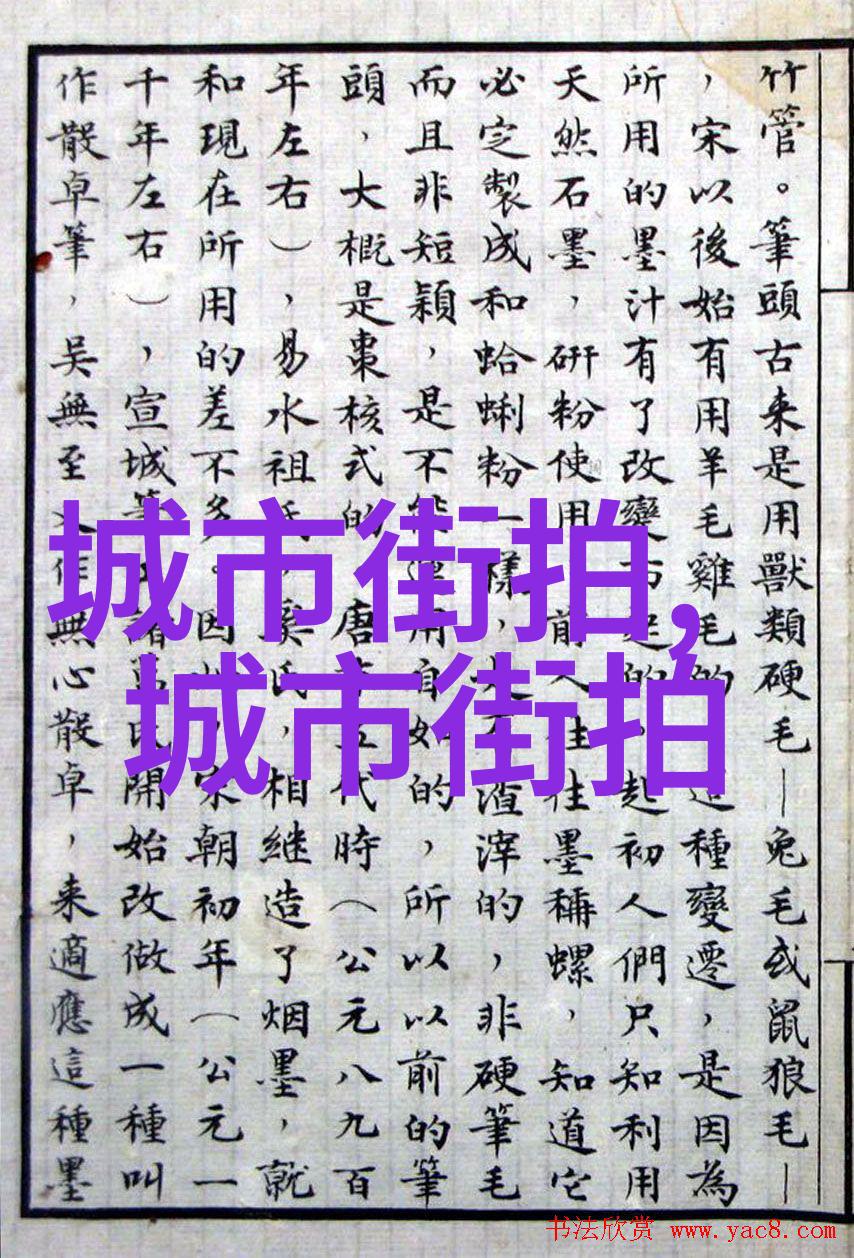 竹管。筆頭古来是用獸類硬毛—兔毛或鼠狼毛—
，宋以後始有用羊毛雞毛的這種變遷，是因為
所用的墨汁有了改變而起的。起初人們只知利用
天然石墨，研粉使用前人往往墨稱螺，知道它
必定製成和蛤蜊粉一樣，渣滓的，非硬筆毛
而且非短穎，是不能運用自如的，所以以前的筆
頭，大概是棗核式的唐五代時（公元八九百
年左右），易水祖氏奚氏，相継造了烟墨，就
和現在所用的差不多。因宋朝初年（公元一
千年左右），宣城筆諸葛氏開始改做成一種叫
作散卓筆，吳無至又作無心散卓，来適應這種墨
城市街拍,
城市街拍
书法欣赏 www.yac8.com